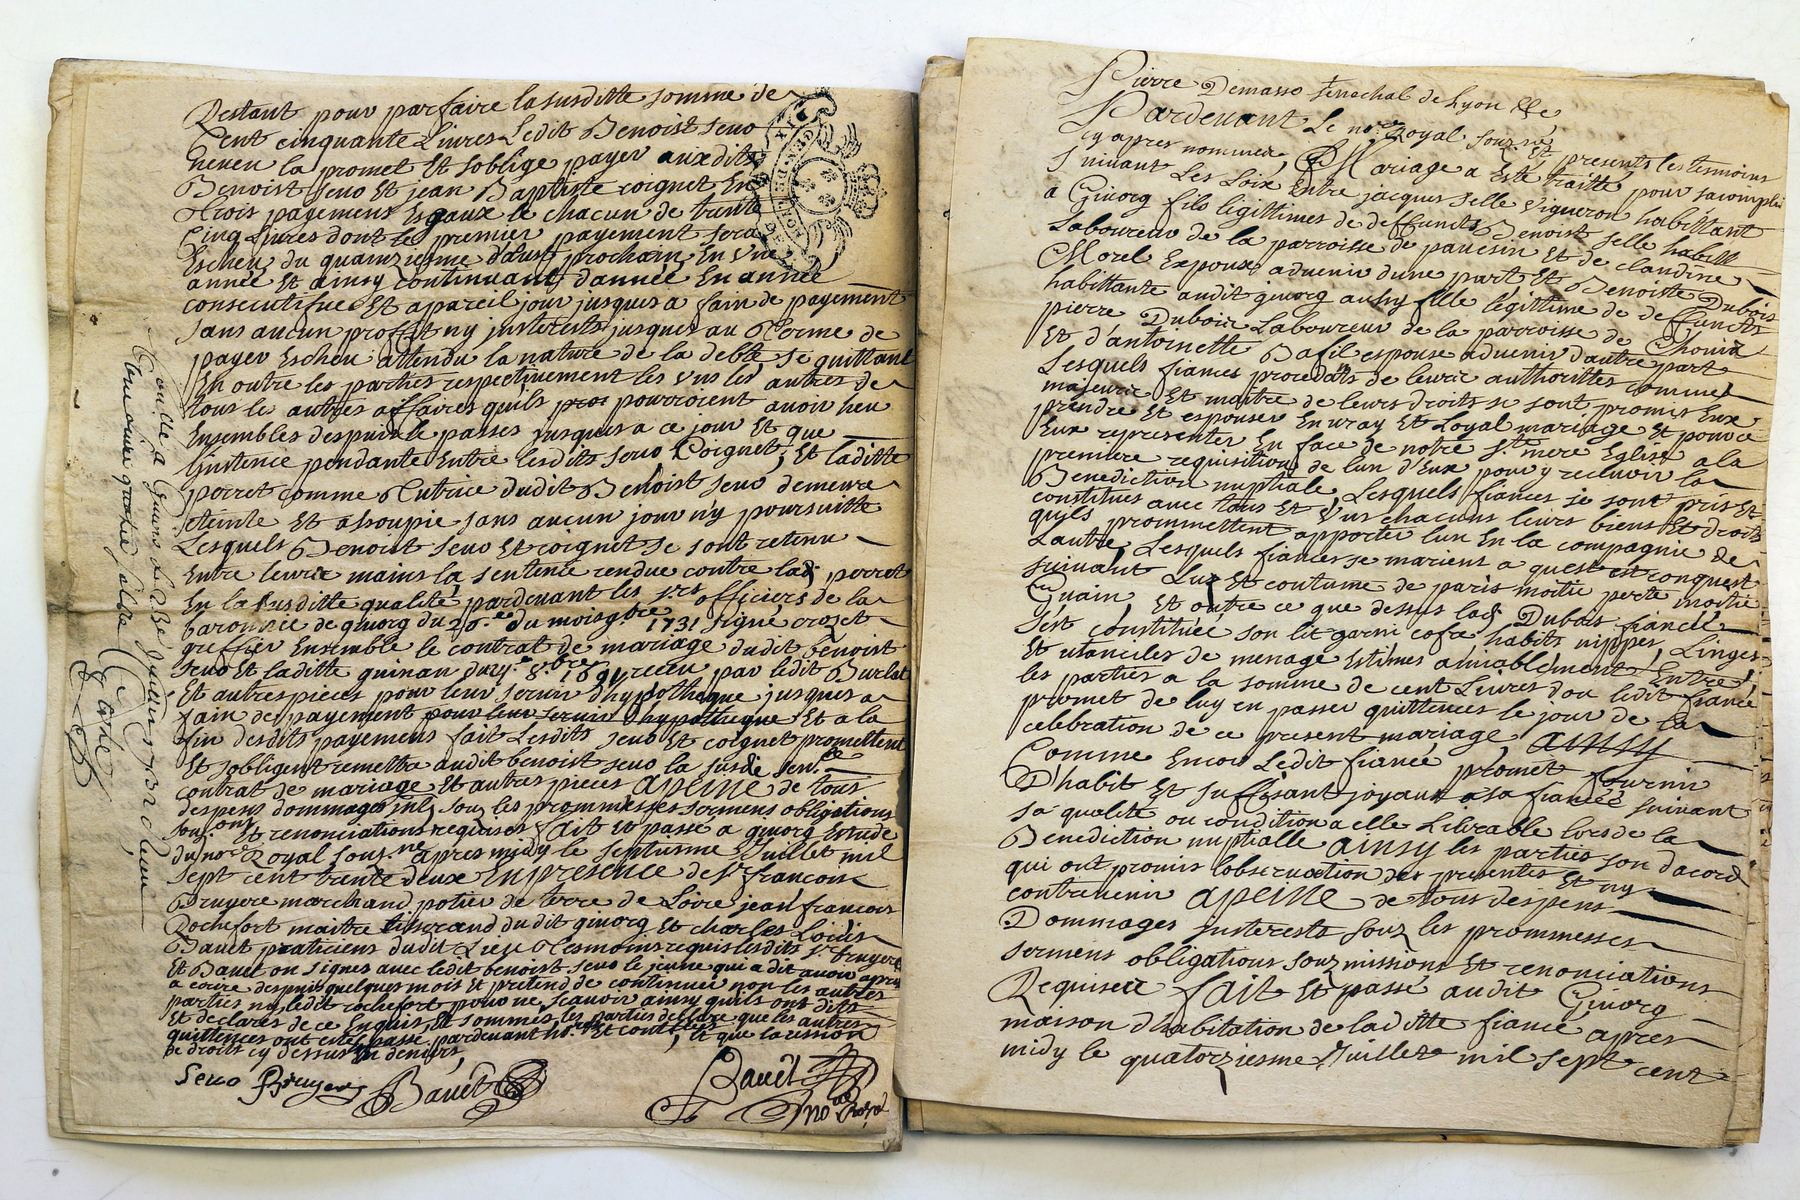 Restant pour parfaire la susditte somme de
Cent cinquante Livres Ledit Benoist Seuo
neueu la promet Et soblige payer auxdits
Benoist Seuo Et jean Baptiste coignet En
trois payemens Egaux de chacun de trente
Cinq Livres dont le premier payement sera
Escheu du quinziesme d'aust prochain En vne
année Et ainsy continuant d'année En année
consecutifue Et a pareil jour jusques a fain de payement
sans aucun proffit ny jnsterests jusques au terme de
payer Escheu attendu la nature de la debte, se quittant
En outre les parties respectiuement les vns les autres de
tous les autres affaires quils pourroient auoir heu
Ensembles despuis le passes jusques a ce jour Et que
Linstence pendante Entre lesdits Seuo Coignet, Et laditte
perret comme tutrice dudit Benoist Seuo demeure
eteinte Et assoupie sans aucun jour ny poursuitte
Lesquels Benoist Seuo Et coignet se sont retenu
Entre leurs mains la sentence rendue contre lad perret
En la susditte qualité pardeuant les srs officiers de la
baronnie de giuorg du 20e du mois 9bre 1731 signé crozet
greffier Ensemble le contrat de mariage dudit benoist
Seuo Et laditte guinan du 8bre 1691 receu par ledit Burlat
Et autres pieces pour leur seruir d'hypotheque jusques a
fain de payement pour leur seruir d'hypotheque Et a la
fin desdits payemens fait Lesdits Seuo Et coignet promettent
Et sobligent remettre audit benoist Seuo la susde sence
contrat de mariage Et autres pieces apeine de tous
despens dommages ints souz les prommesses sermens obligations
soumons Et renonciations requises fait Et passé a giuorg Estude
du nore Royal souz.né apres midy le septiesme Juillet mil
sept cent trante deux En presence de sr francois
Bruyere marchand potier de terre de Loire jean francois
Rochefort maitre tisserand dudit giuorg Et charles Louis
Bauet praticiens dudit Lieu tesmoins requis lesdits sr bruyere
Et Bauet on signes auec ledit benoist Seuo le jeune qui a dit auoir apris
a ecrire despuis quelques mois Et pretend de continuer non les autres
parties ny ledit rochefort pour ne scauoir ainsy quils ont dits
Et declares de ce Enquis Et sommés les parties declare que les autres
quittences ont estes passe pardeuant nores Et contlées, Et que la cession
de droits cy dessus En deniers
Seuo Bruyere Bauet Bauet
nore Royal
Conlle a Giuors le Juillet 1732 Receu
pour quatre solds
Pierre Demasso senechal de Lyon &&c
Pardeuant Le nore Royal souz.né
Et presents les tesmoins
cy apres nommes, Mariage a Esté traitté pour sacomplir
Suiuant Les Loix Entre jacques Selle vigneron habittant
a Giuorg fils legittimes de deffuncts Benoist Selle habitt
Laboureur de la parroisse de pauesin Et de claudine
Morel Expoux aduenir dune part Et Benoiste Dubois
habittante audit giuorg aussy fille legitime de deffuncts
pierre Dubois Laboureur de la parroisse de Chouia
Et d'antoinette Bafil espouse aduenir d'autre part
Lesquels fiances procedants de leurs authorittes comme
majeurs Et maitre de leurs droits se sont promis Eux
prendre Et espouser En vray Et Loyal mariage Et pource
Eux representer En face de notre ste mere Eglise a la
premiere requisition de lun d'Eux pour y receuoir la
Benediction nuptiale, Lesquels fiances se sont pris Et
constitues auec tous Et vns chacuns leurs biens Et droits
quils prommettent apporter lun En la compagnie de
Lautre, Lesquels fiances se marient a quest Et conquest
suiuant Lus Et coutume de paris moitie perte moitie
Guain, Et outre ce que dessus lad Dubois fiancée
s'est constituée son lit garni cofre habits nippes, Linges
Et utanciles de menage Estimes amiablement Entre
les parties a la somme de cent Livres dou ledit fiance
promet de luy en passer quittences le jour de la
celebration de ce present mariage, ainsy
Comme Encor Ledit fiancé promet fournir
D'habit Et suffisant joyaux a sa fiancée suiuant
sa qualité ou condition a elle Liurable lors de la
Benediction nuptialle ainsy les parties son dacord
qui ont promis lobseruation des presentes Et ny
contreuenir apeine de tous despens
Dommages jnsterests souz les prommesses
sermens obligations souzmissions Et renonciations
Requises fait Et passé audit Giuorg
maison d'habitation de laditte fiancé apres
midy le quatorziesme Juillet mil sept cent